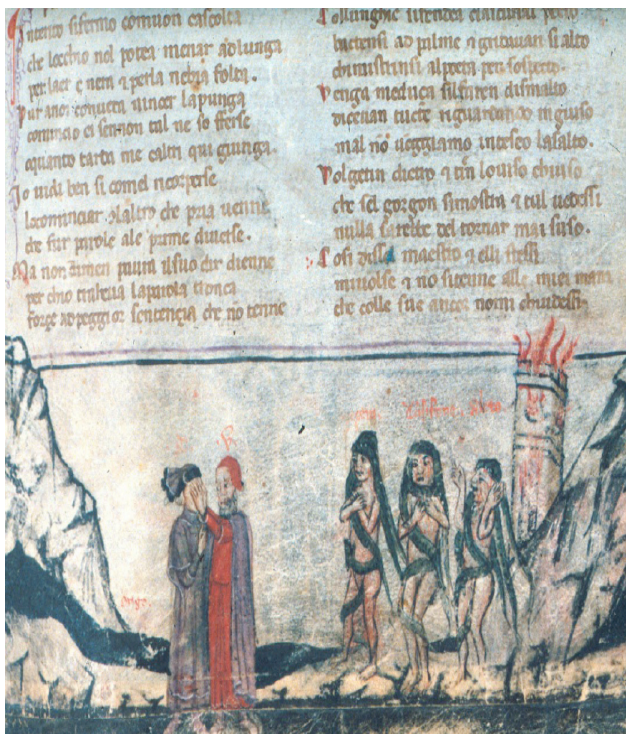 Intento sifermo comuon cascolta
che lochio nol potea menar adlunga
per laer e nero e perla nebia folta.
Pur anoi conuerra uincer lapunga
comincio ei senon tal ne so fferse
oquanto tarda me caltri qui giunga.
Io uidi ben si comei ricoperse
locominciar collaltro che poi uenne
che fur parole ale prime diuerse.
Ma non dimen paura ilsuo dir dienne
per chio traheua laparola tronca
forse adpeggior sentençia che nõ tenne
Collunghie sifendea ciascuna pecto
bactensi ad palme e gridauan si alto
chimistrinsi alpoeta per sospecto.
Venga medusa silfaren dismalto
dicean tucte riguardando ingiuso
mal nõ ueggiamo inteseo lasalto.
Volgetin dietro e tien louiso chiuso
che sel gorgon simostra e tul uedessi
nulla sarebbe del tornar mai suso.
Cosi dissel maestro e elli stessi
miuolse e nõ sitenne alle mie mani
che colle sue ancor nonmi chiudessi